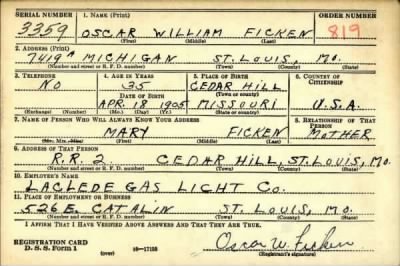 SERIAL NUMBER 1. NAME (Print) ORDER NUMBER
3359 OSCAR WILLIAM FICKEN 819
(First) (Middle) (Last)
2. ADDRESS (Print)
7419A MICHIGAN ST. LOUIS, MO.
(Number and street or R. F. D. number) (Town) (County) (State)
3. TELEPHONE 4. AGE IN YEARS 5. PLACE OF BIRTH 6. COUNTRY OF CITIZENSHIP
NO 35 CEDAR HILL
DATE OF BIRTH (Town or county)
APR. 18 1905 MISSOURI U.S.A.
(Exchange) (Number) (Mo.) (Day) (Yr.) (State or country)
7. NAME OF PERSON WHO WILL ALWAYS KNOW YOUR ADDRESS 8. RELATIONSHIP OF THAT PERSON
MARY FICKEN MOTHER
(Mr. Mrs. Miss) (First) (Middle) (Last)
9. ADDRESS OF THAT PERSON
R.R. 2 CEDAR HILL, ST. LOUIS, MO.
(Number and street or R. F. D. number) (Town) (County) (State)
10. EMPLOYER'S NAME
LACLEDE GAS LIGHT CO.
11. PLACE OF EMPLOYMENT OR BUSINESS
526 E. CATALIN ST. LOUIS, MO.
(Number and street or R. F. D. number) (Town) (County) (State)
I AFFIRM THAT I HAVE VERIFIED ABOVE ANSWERS AND THAT THEY ARE TRUE.
REGISTRATION CARD
D. S. S. Form 1 (over) 16-17105 Oscar W. Ficken
(Registrant's signature)